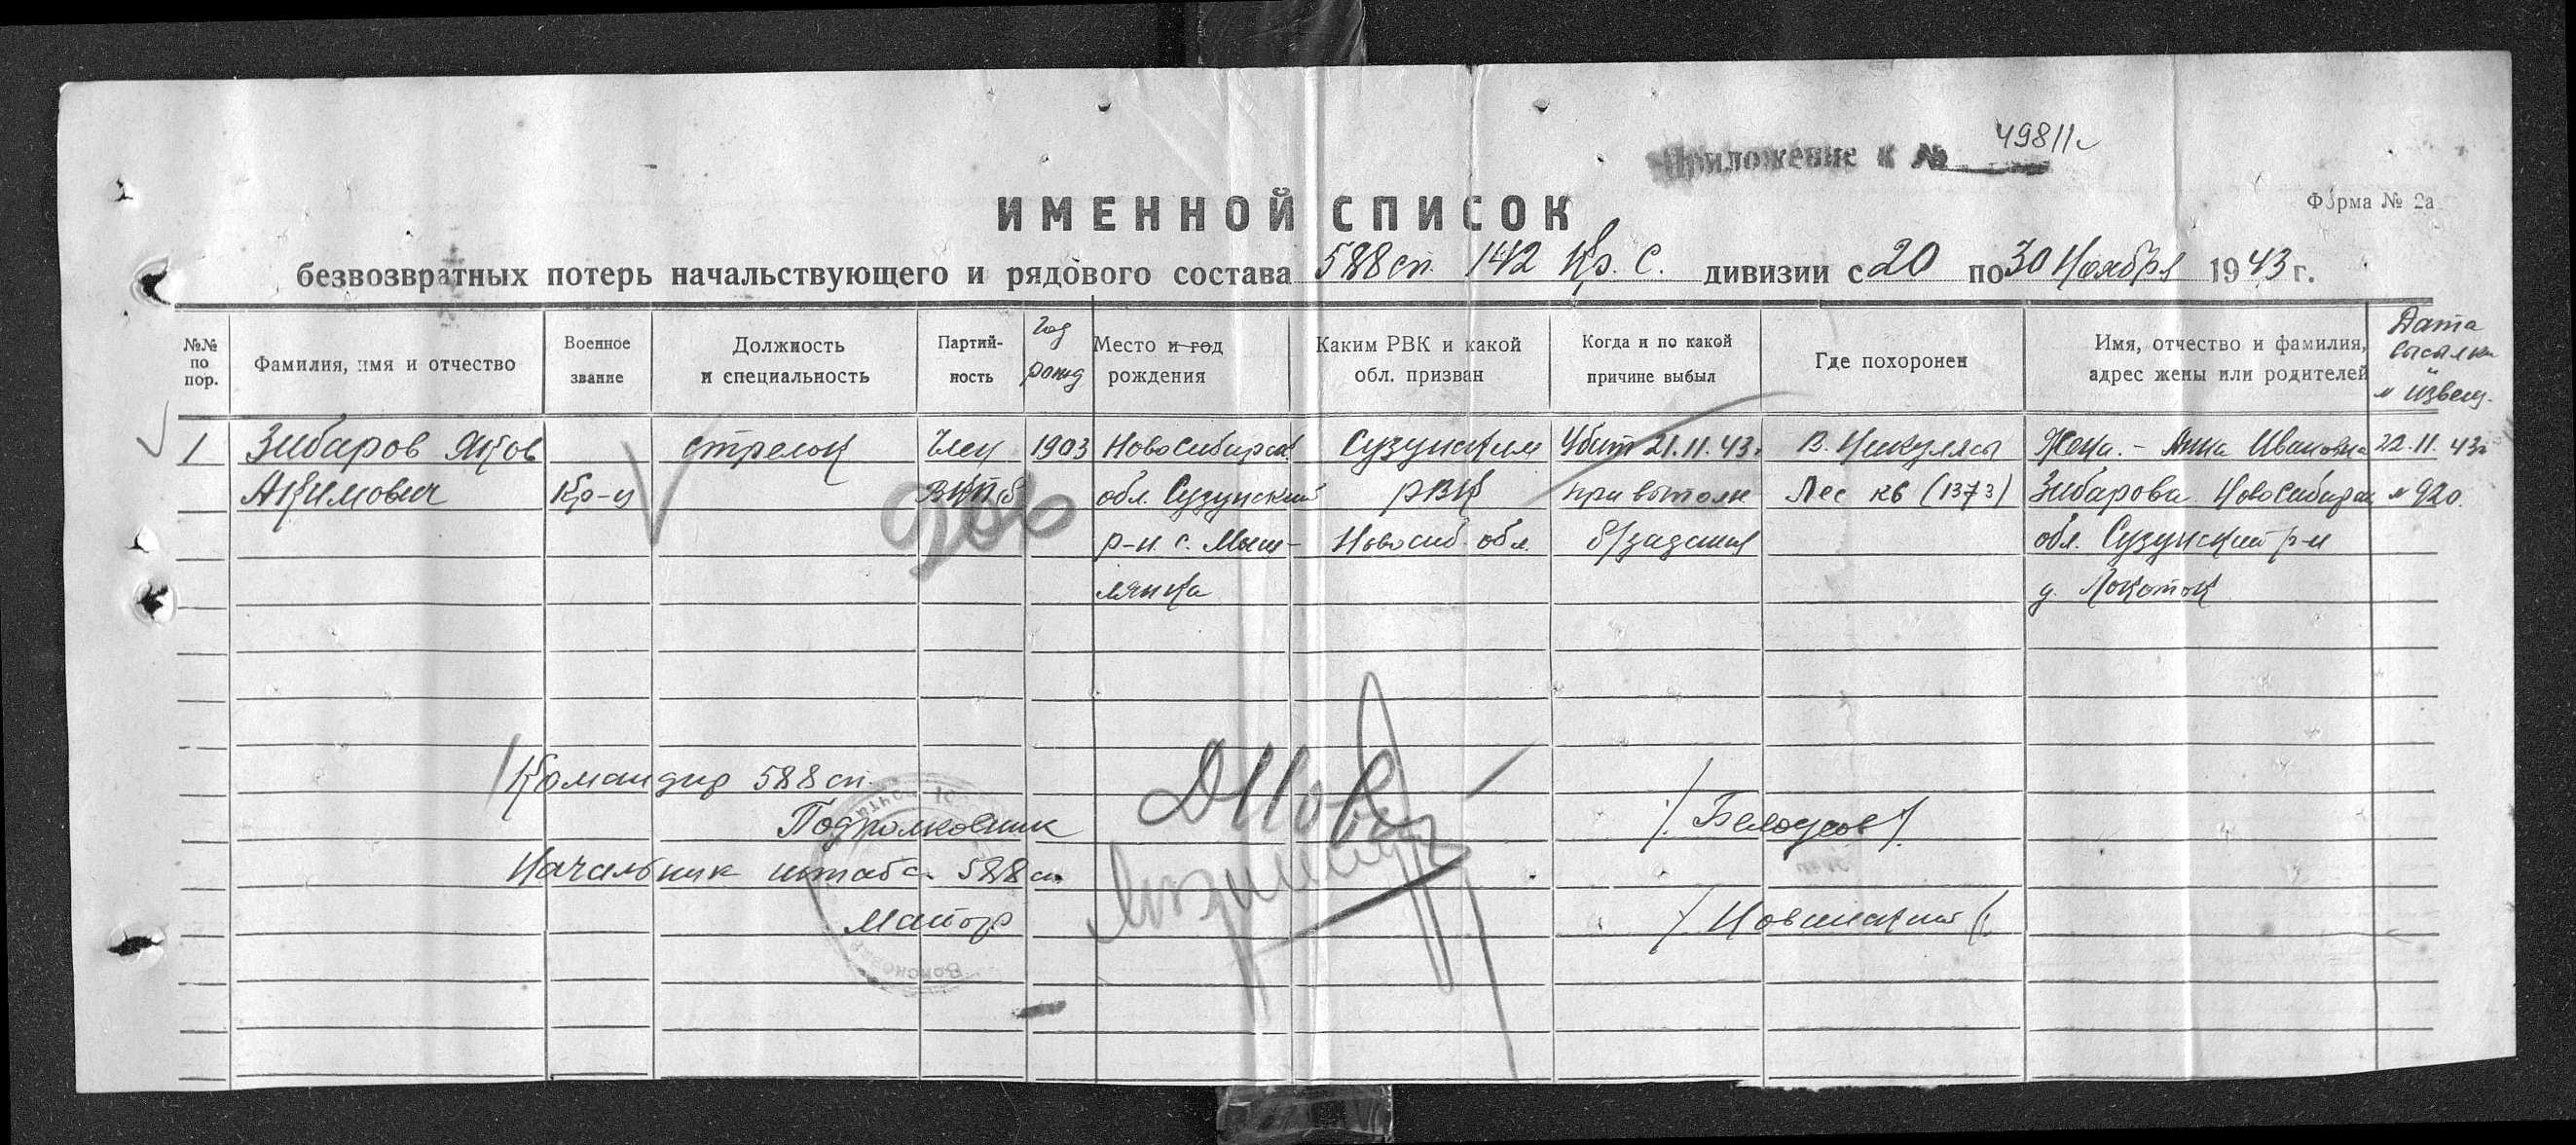 Приложение к № 49811с
Форма № 2а
ИМЕННОЙ СПИСОК
безвозвратных потерь начальствующего и рядового состава 588 сп. 142 Кр. С. дивизии с 20 по 30 Ноября 1943 г.
№№ по пор.
Фамилия, имя и отчество
Военное звание
Должность и специальность
Партий-ность
Год рожд
Место и год рождения
Каким РВК и какой обл. призван
Когда и по какой причине выбыл
Где похоронен
Имя, отчество и фамилия, адрес жены или родителей
Дата высылки и № извещ.
1 Зибаров Яков стрелок Член 1903 Новосибирск. Сузунским Убит 21.11.43. В. Никулясы Жена. - Анна Ивановна 22.11.43г
Акимович Кр-ц ВКП/б обл. Сузунский РВК при выполн Лес кв (1373) Зибарова Новосибирск № 920.
р-н. с. Мыш- Новосиб. обл. б/задания обл. Сузунский р-н
лянка д. Локоток
206
Командир 588 сп.
Подполковник /Белоусов/.
Начальник штаба 588 сп.
Майор /Новинский/.